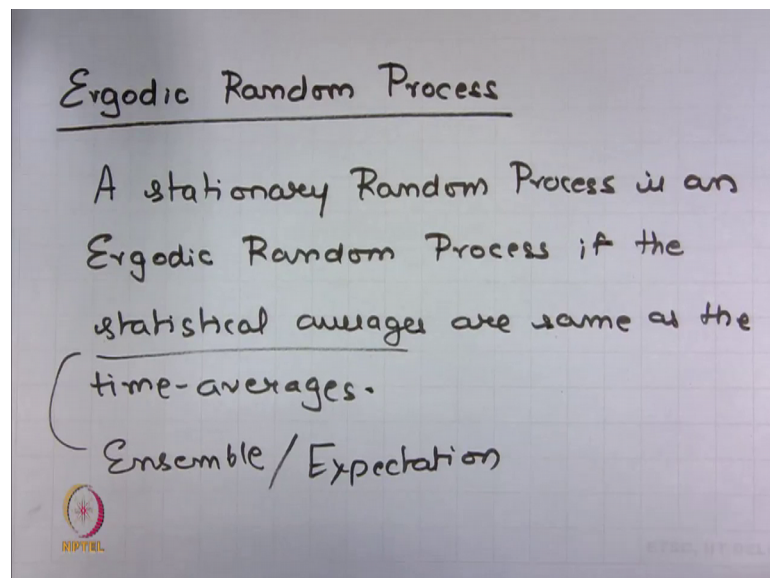 Ergodic Random Process
A stationary Random Process is an
Ergodic Random Process if the
statistical averages are same as the
time-averages.
Ensemble/Expectation
NIPTEL